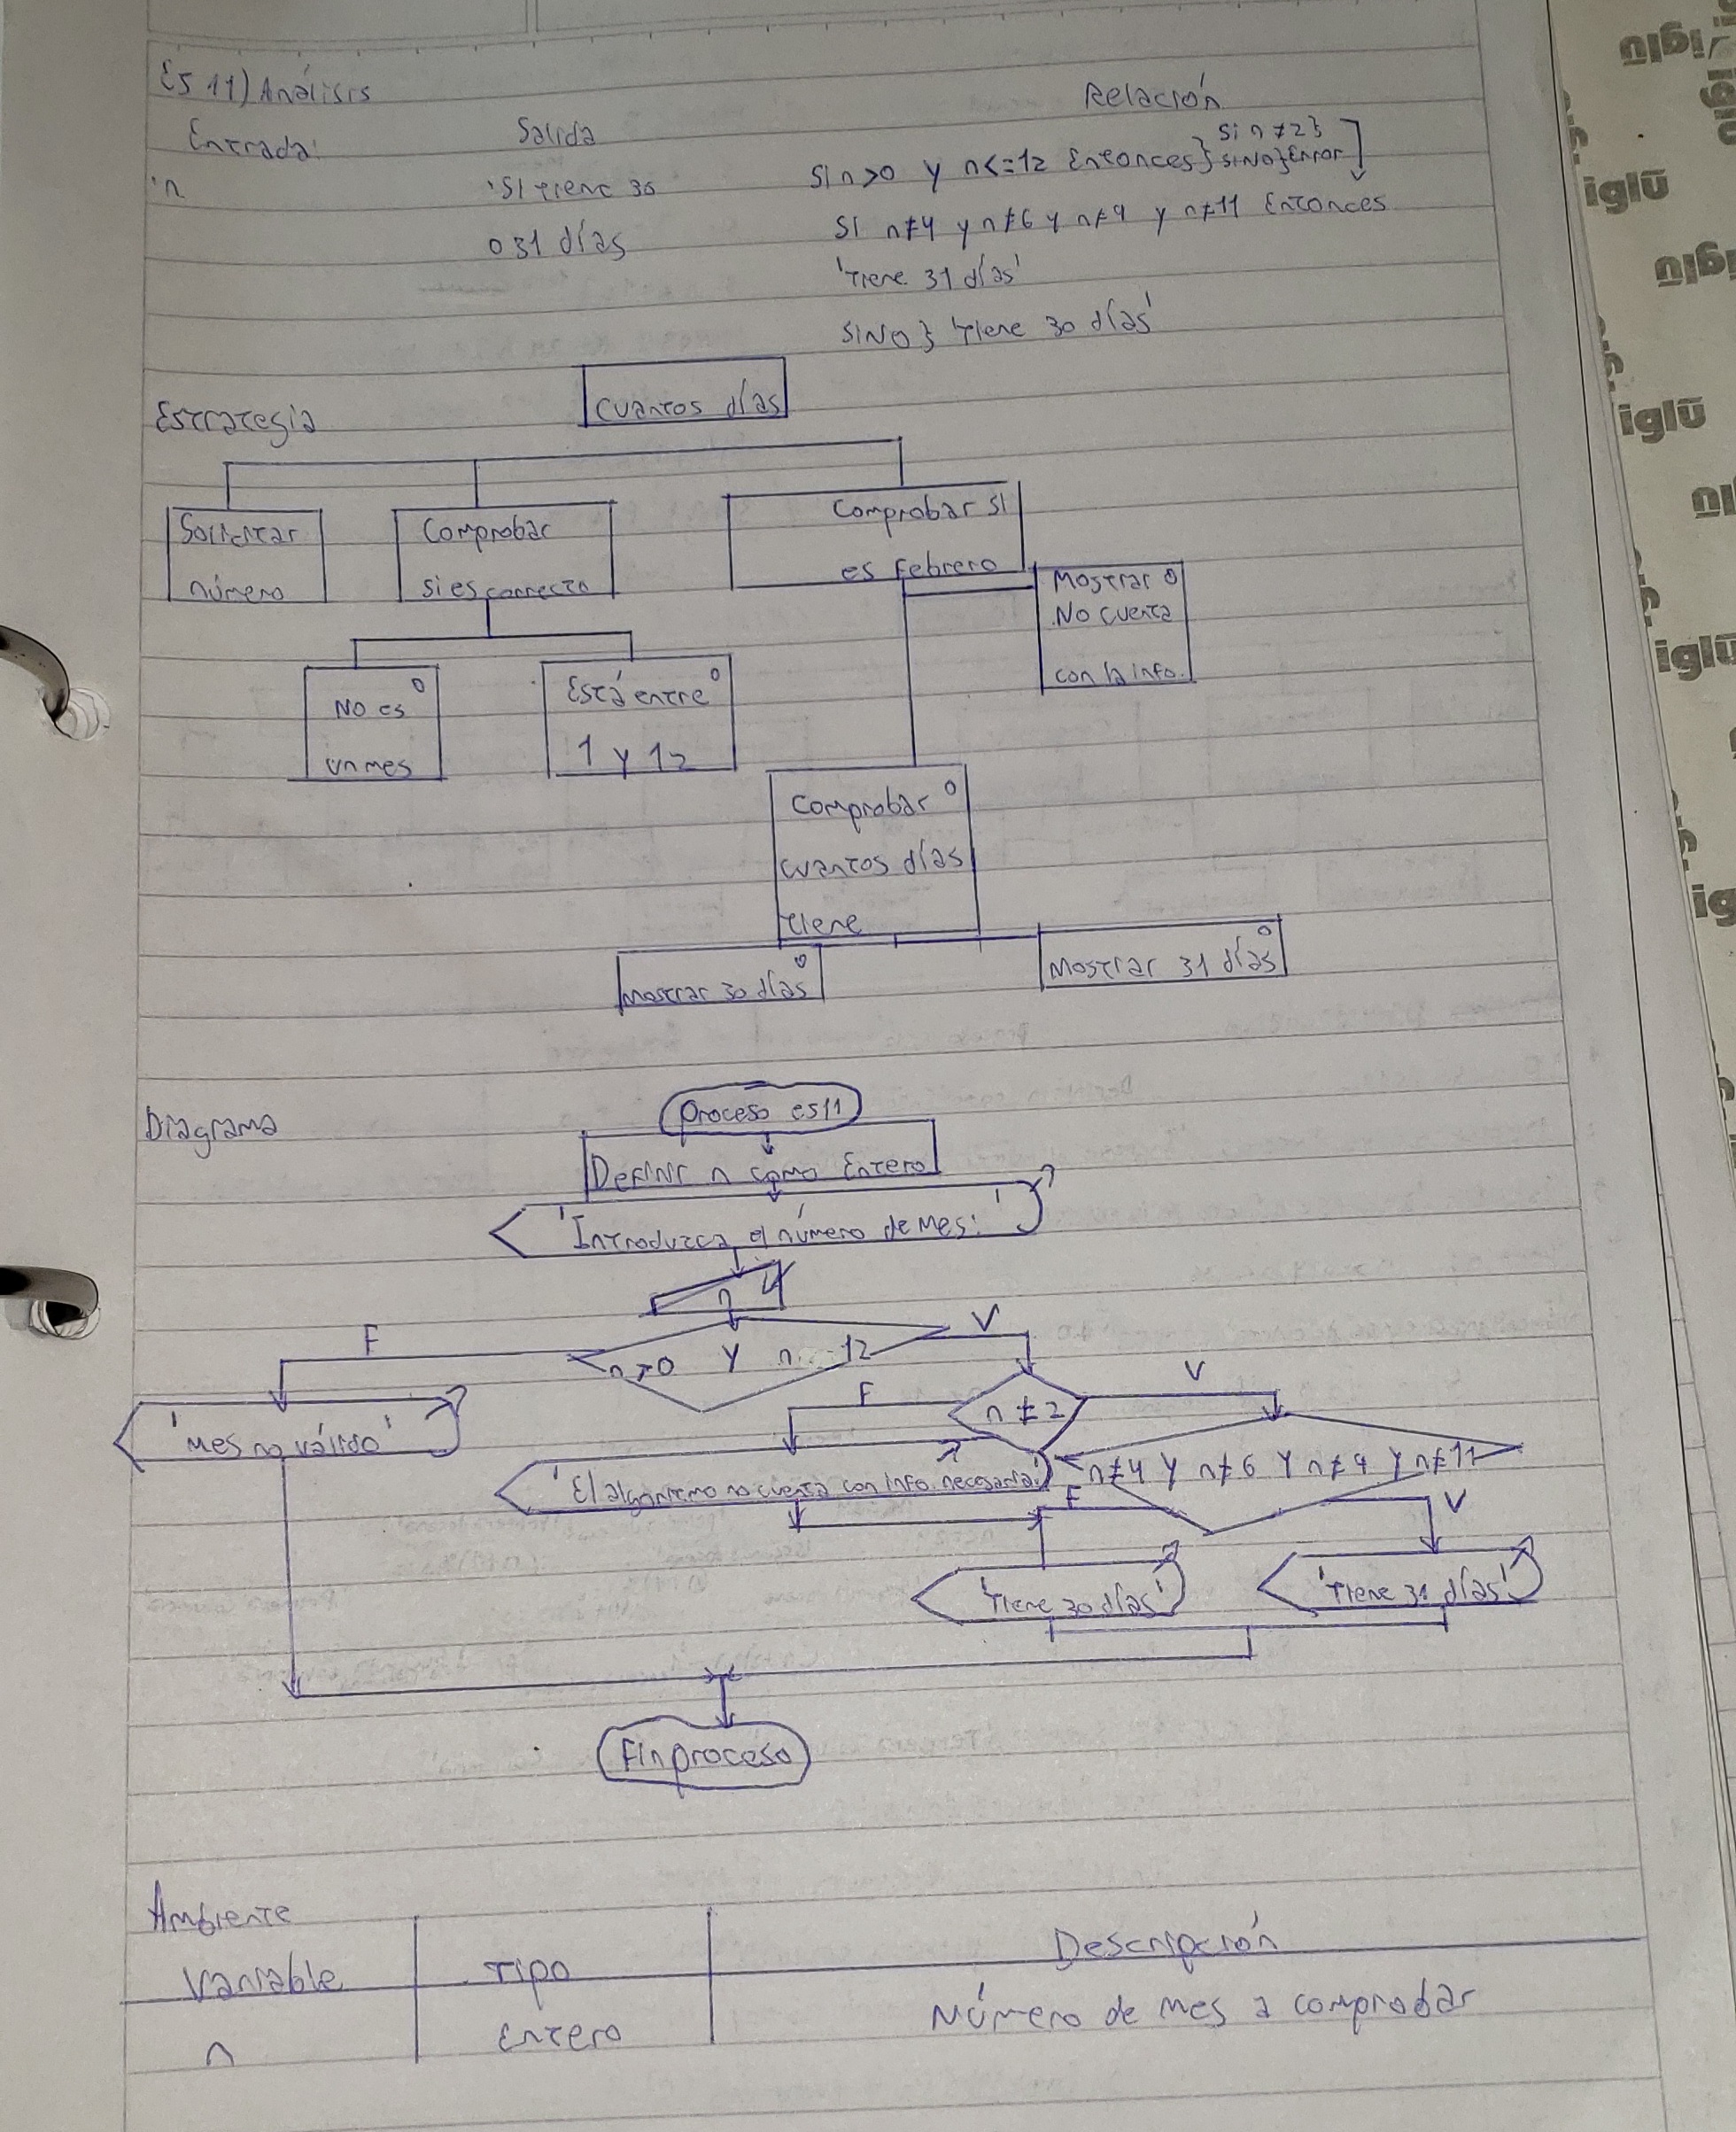 ES 11) Análisis
Entrada:
Salida
Relación
'n
'Si tiene 30
o 31 días
Si n>0 y n<=12 Entonces} Si n≠2}
SINO}Error
Si n≠4 y n≠6 y n≠9 y n≠11 Entonces
'Tiene 31 días'
SINO} 'Tiene 30 días'
Estrategia
Cuantos días
Solicitar
número
Comprobar
si es correcto
Comprobar si
es febrero
Mostrar o
No cuenta
con la info.
No es o
un mes
Está entre o
1 y 12
Comprobar o
cuantos días
tiene
Mostrar 30 días o
Mostrar 31 días o
Diagrama
Proceso es11
Definir n como Entero
'Introduzca el número de mes: '
n
F
n>0 Y n 12
V
'Mes no válido'
F
n≠2
V
'El algoritmo no cuenta con info. necesaria.'
n≠4 Y n≠6 Y n≠9 Y n≠11
F
V
'Tiene 30 días'
'Tiene 31 días'
Finproceso
Ambiente
Variable
Tipo
Descripción
n
Entero
Número de mes a comprobar
iglū
iglū
iglū
iglū
iglū
iglū